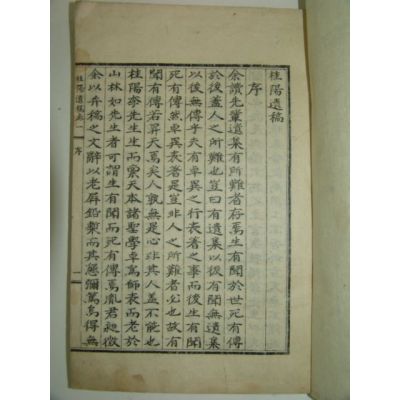 桂陽遺稿
序
余讀先輩遺集有所難者存焉生有聞於世死有傳
於後蓋人之所難也豈曰有遺集以後有聞無遺集
以後無傳乎天與卓異之行表著之事而後生有聞
死有傳然卓異表著者是豈非人之所難者也故有
聞有傳若昇天焉矣人孰無是心非其人蓋不能也
桂陽李先生而稟天本諸聖學卓篤師表而老於
山林如先生者可謂生有聞而死有傳焉胤君昶徵
余以弁稿之文辭以老屏鉛槧而其懇彌篤烏得無
桂陽遺稿卷一 序 一